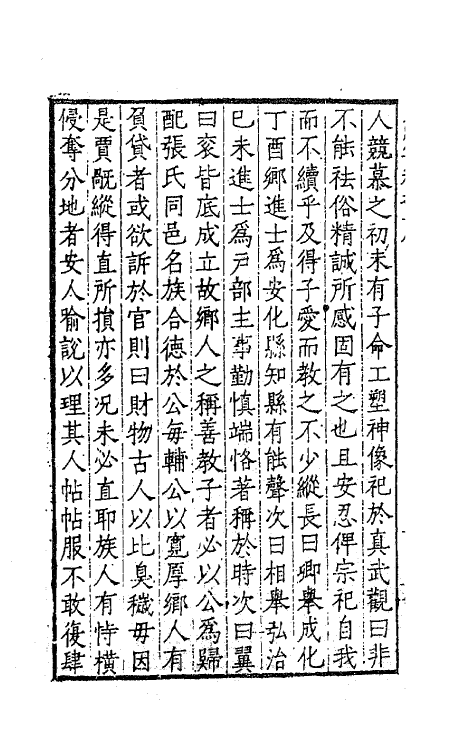 人競慕之初未有子命工塑神像祀於真武觀曰非
不能祛俗精誠所感固有之也且安忍俾宗祀自我
而不續乎及得子愛而教之不少縱長曰卿舉成化
丁酉鄉進士爲安化縣知縣有能聲次曰相舉弘治
己未進士爲戸部主事勤慎端恪著稱於時次曰翼
曰衮皆底成立故鄉人之稱善教子者必以公爲歸
配張氏同邑名族合德於公每輔公以寛厚鄉人有
負貸者或欲訴於官則曰財物古人以比臭穢毋因
是賈𢧵縱得直所損亦多况未必直耶族人有恃橫
侵奪分地者安人喻說以理其人帖帖服不敢復肆